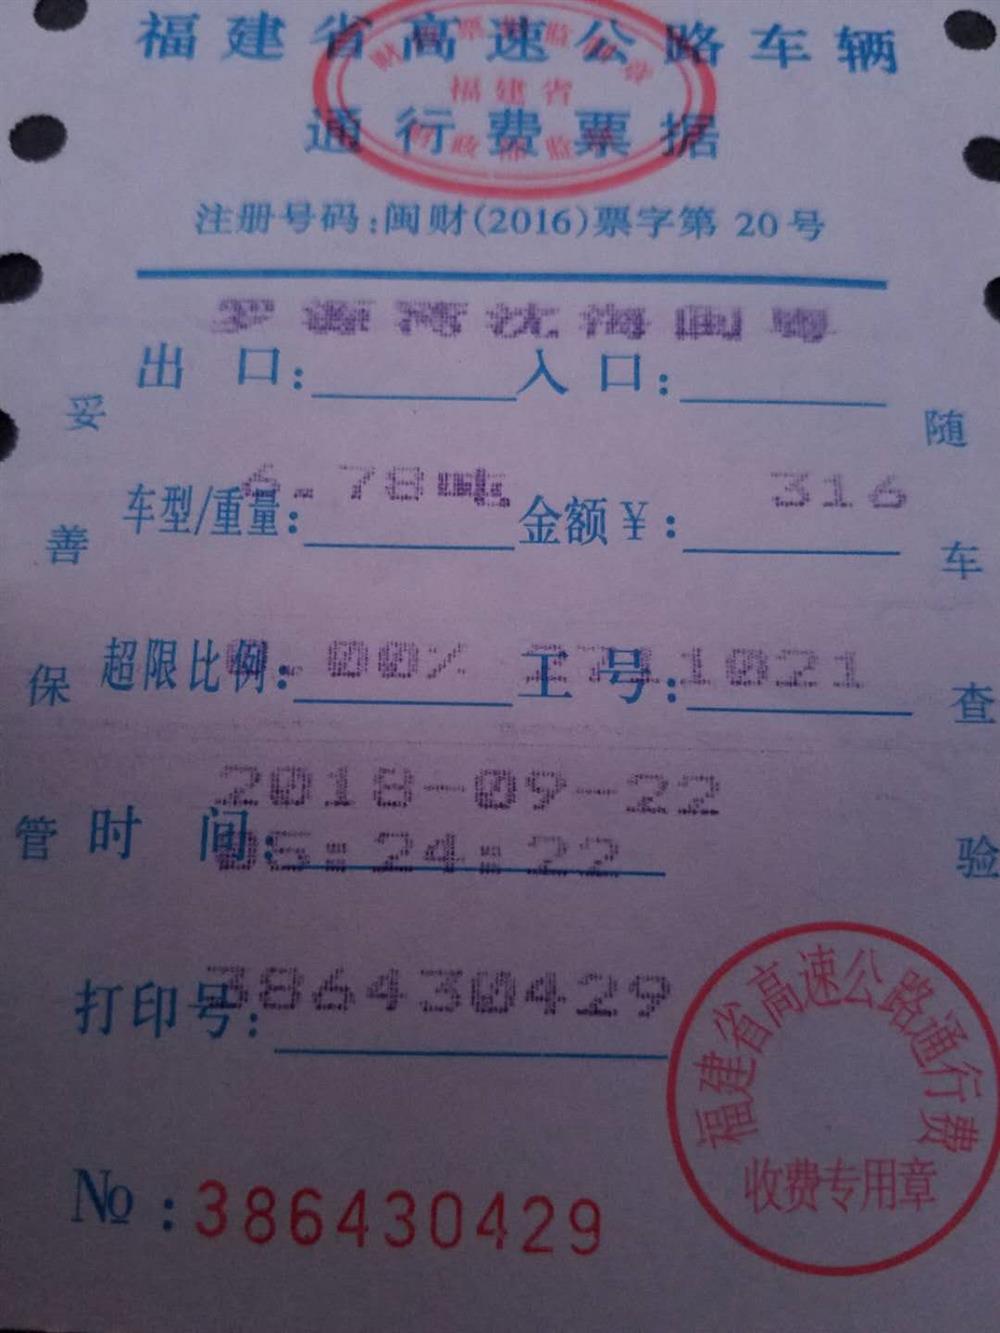 福建省高速公路车辆
通行费票据
福建省
注册号码:闽财(2016)票字第 20号
罗源湾沈海闽粤
出 口: 入 口:
车型/重量: 6.78吨 金额￥: 316
超限比例: 0.00% 工 号: 1021
时 间: 2018-09-22
05:24:22
打印号: 386430429
№:386430429
妥善保管
随车查验
福建省高速公路通行费
收费专用章